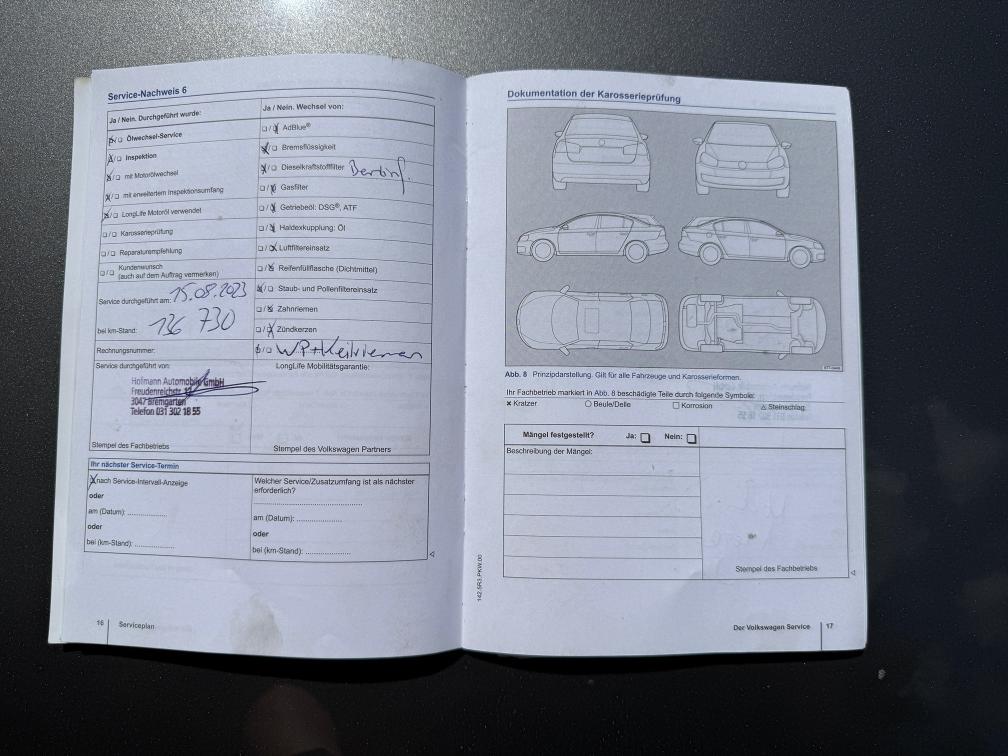 Service-Nachweis 6
Ja / Nein. Durchgeführt wurde:
Ölwechsel-Service
Inspektion
mit Motorölwechsel
mit erweitertem Inspektionsumfang
LongLife Motoröl verwendet
Karosserieprüfung
Reparaturempfehlung
Kundenwunsch
(auch auf dem Auftrag vermerken)
Service durchgeführt am: 15.08.2023
bei km-Stand: 136 730
Rechnungsnummer:
Service durchgeführt von:
Hofmann Automobile GmbH
Freudenreichstr.
3047 Bremgarten
Telefon 031 302 18 55
Stempel des Fachbetriebs
Ja / Nein. Wechsel von:
AdBlue®
Bremsflüssigkeit
Dieselkraftstofffilter
Gasfilter
Getriebeöl: DSG®, ATF
Haldexkupplung: Öl
Luftfiltereinsatz
Reifenfüllflasche (Dichtmittel)
Staub- und Pollenfiltereinsatz
Zahnriemen
Zündkerzen
WP+Keilriemen
LongLife Mobilitätsgarantie:
Stempel des Volkswagen Partners
Ihr nächster Service-Termin
nach Service-Intervall-Anzeige
oder
am (Datum): ................
oder
bei (km-Stand): ...............
Welcher Service/Zusatzumfang ist als nächster
erforderlich?
am (Datum): ................
oder
bei (km-Stand): ................
16 Serviceplan
Dokumentation der Karosserieprüfung
Abb. 8 Prinzipdarstellung. Gilt für alle Fahrzeuge und Karosserieformen.
Ihr Fachbetrieb markiert in Abb. 8 beschädigte Teile durch folgende Symbole:
× Kratzer ○ Beule/Delle □ Korrosion △ Steinschlag
Mängel festgestellt? Ja: □ Nein: □
Beschreibung der Mängel:
Stempel des Fachbetriebs
142.5R3.PKW.00
Der Volkswagen Service 17